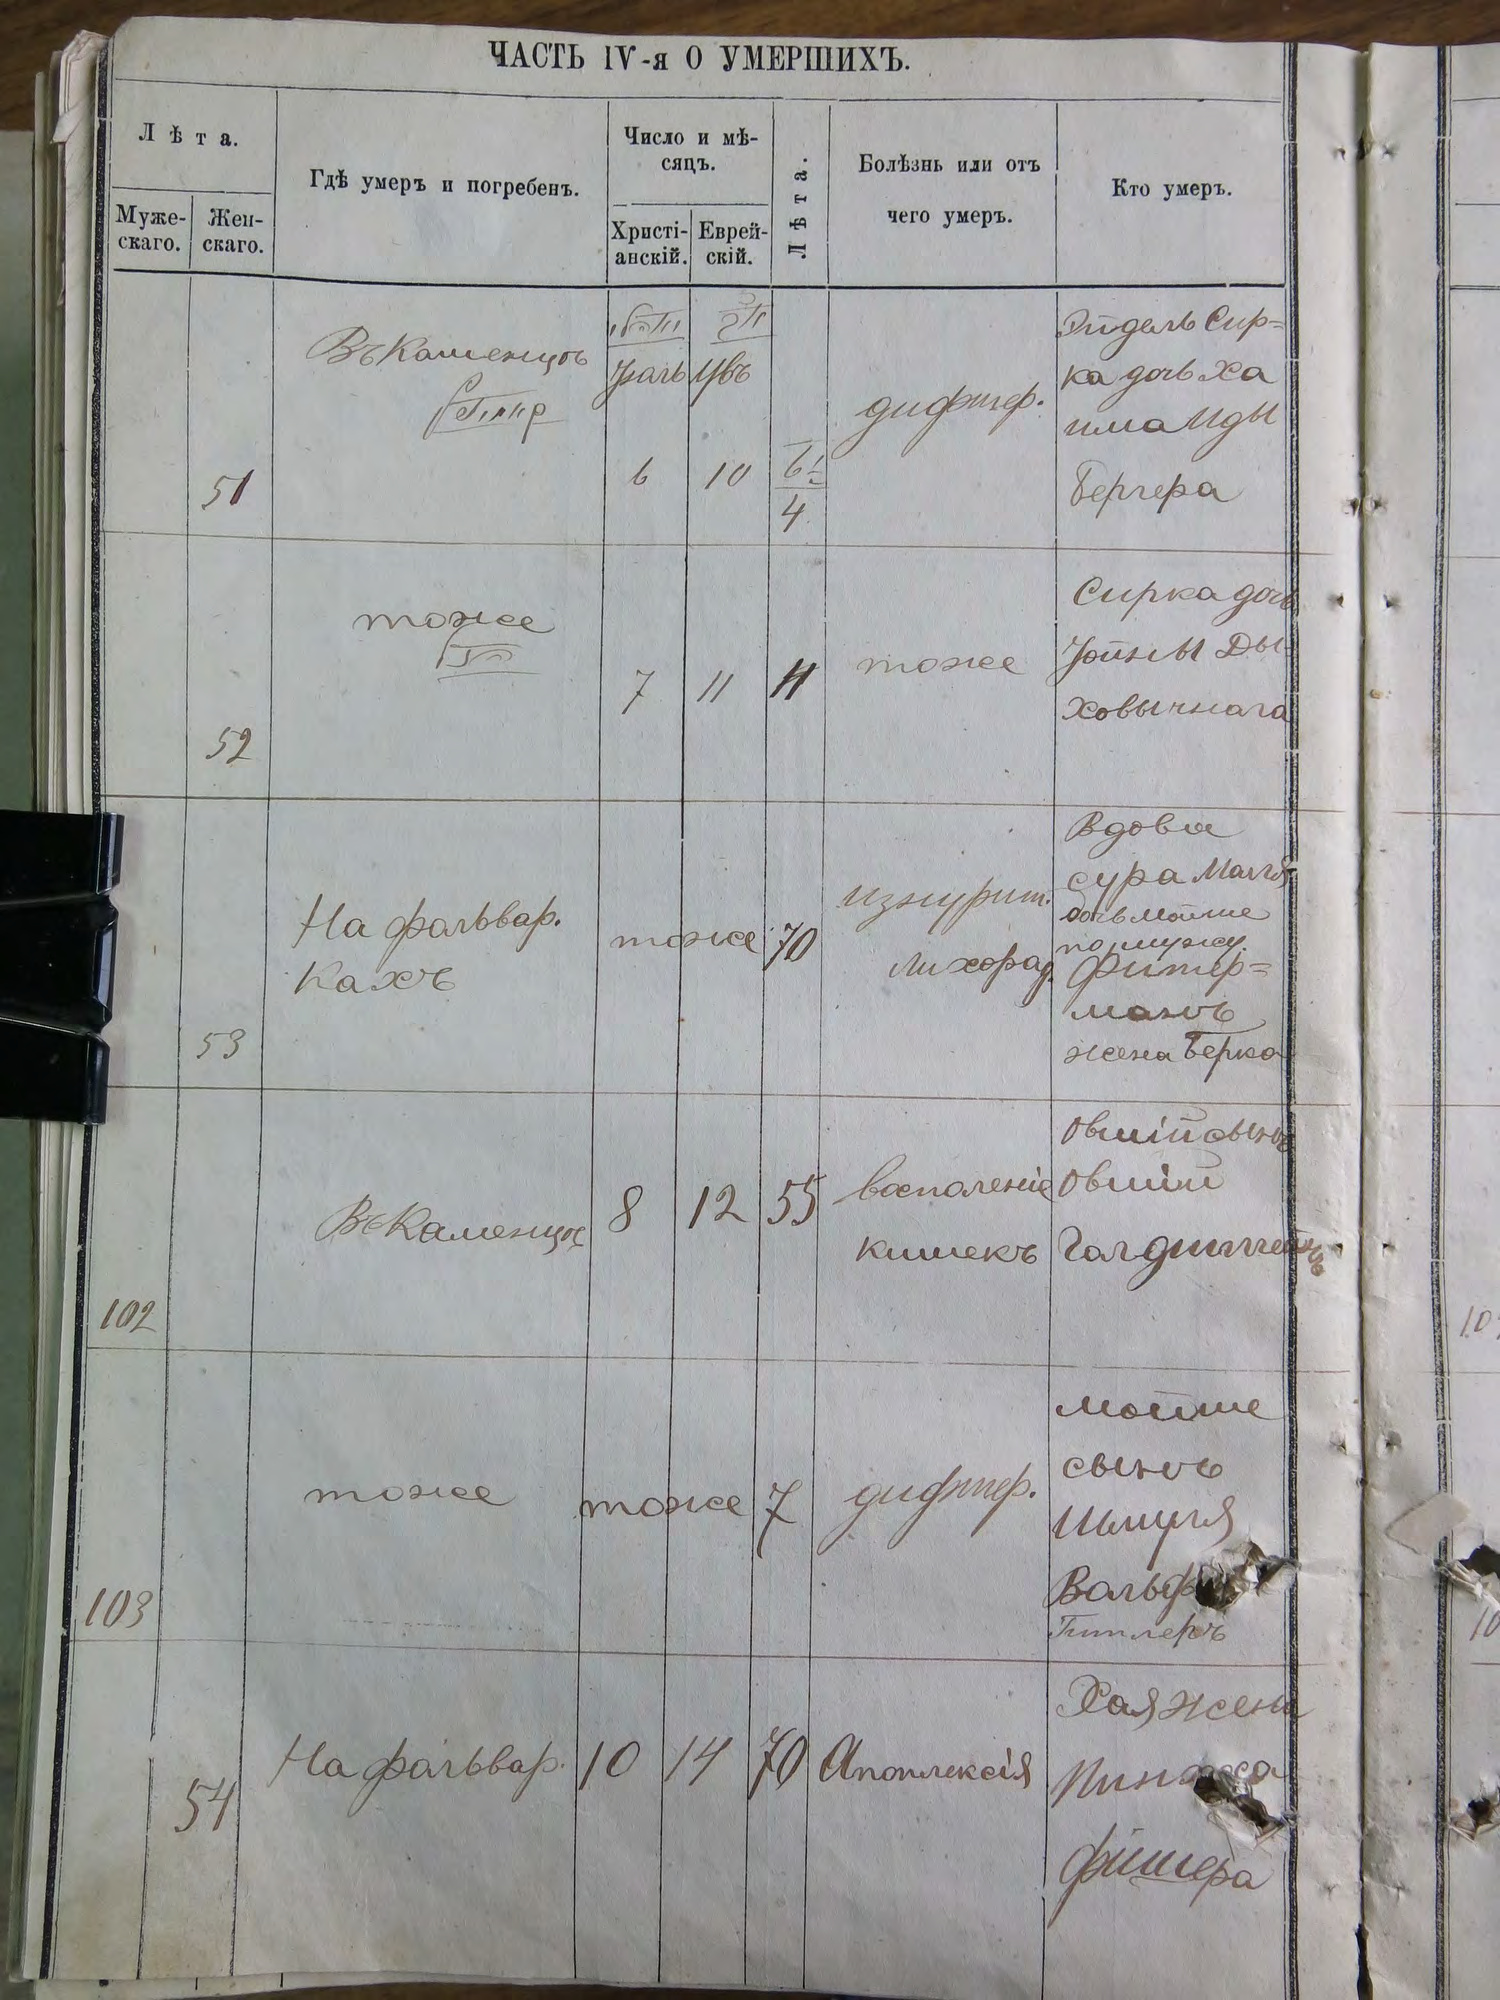 ЧАСТЬ IV-я О УМЕРШИХЪ.
Лѣта.
Муже-
скаго.
Жен-
скаго.
Гдѣ умеръ и погребенъ.
Число и мѣ-
сяцъ.
Христі-
анскій.
Еврей-
скій.
Лѣта.
Болѣзнь или отъ
чего умеръ.
Кто умеръ.
51
Въ Каменцѣ
6
10
4
дифтер.
Эйдель Сир=
ка дочь Ха
има Иды
Бергера
52
тоже
7
11
11
тоже
Сирка дочь
Іойны Ды
ховычнага
53
На фальвар.
кахъ
тоже
70
изнурит.
лихорад.
Вдова
сура Маля
дочь Мойше
по мужу
Фитер=
манъ
жена Берка
102
Въ Каменцѣ
8
12
55
воспаленіе
кишекъ
Овшій сынъ
Овшій
Голдштейнъ
103
тоже
тоже
7
дифтер.
Мойше
сынъ
Шмуля
Вольф
Гитлеръ
54
На фальвар.
10
14
70
Апоплексія
Хая жена
Пинхаса
Фишера